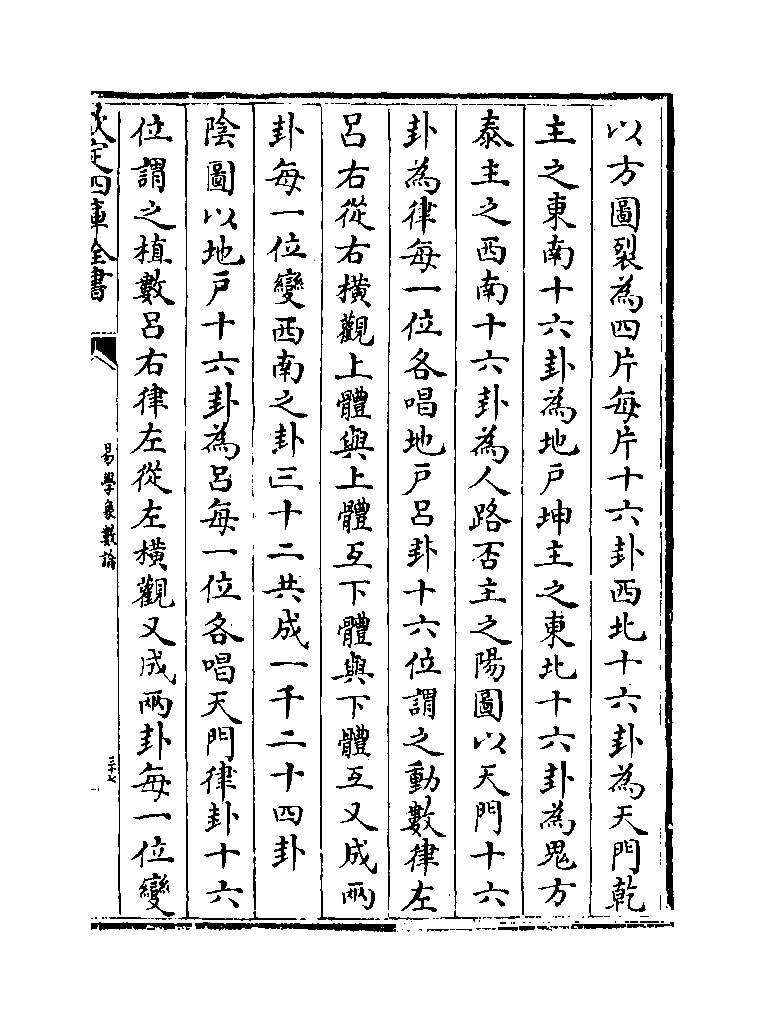 以方圖裂為四片每片十六卦西北十六卦為天門乾
主之東南十六卦為地戸坤主之東北十六卦為鬼方
泰主之西南十六卦為人路否主之陽圖以天門十六
卦為律每一位各唱地戸呂卦十六位謂之動數律左
呂右從右橫觀上體與上體互下體與下體互又成兩
卦每一位變西南之卦三十二共成一千二十四卦
陰圖以地戸十六卦為呂每一位各唱天門律卦十六
位謂之植數呂右律左從左橫觀又成兩卦每一位變
欽定四庫全書
易學象數論
三十七